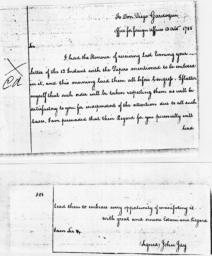 To Don Diego Gardoqui
Office for foreign affairs 1785
Sir
I had the Honour of receiving last Evening your
letter of the 13 Instant with the Papers mentioned to be enclosed
in it, and this morning laid them all before Congress. I flatter
myself that such order will be taken respecting them as will be
satisfactory to you for independent of the attentions due to all such
Cases, I am persuaded that their Regard for you personally will
lead
lead them to embrace every opportunity of manifesting it.
with great and sincere Esteem and Regard
I am Sir &c
Signed John Jay